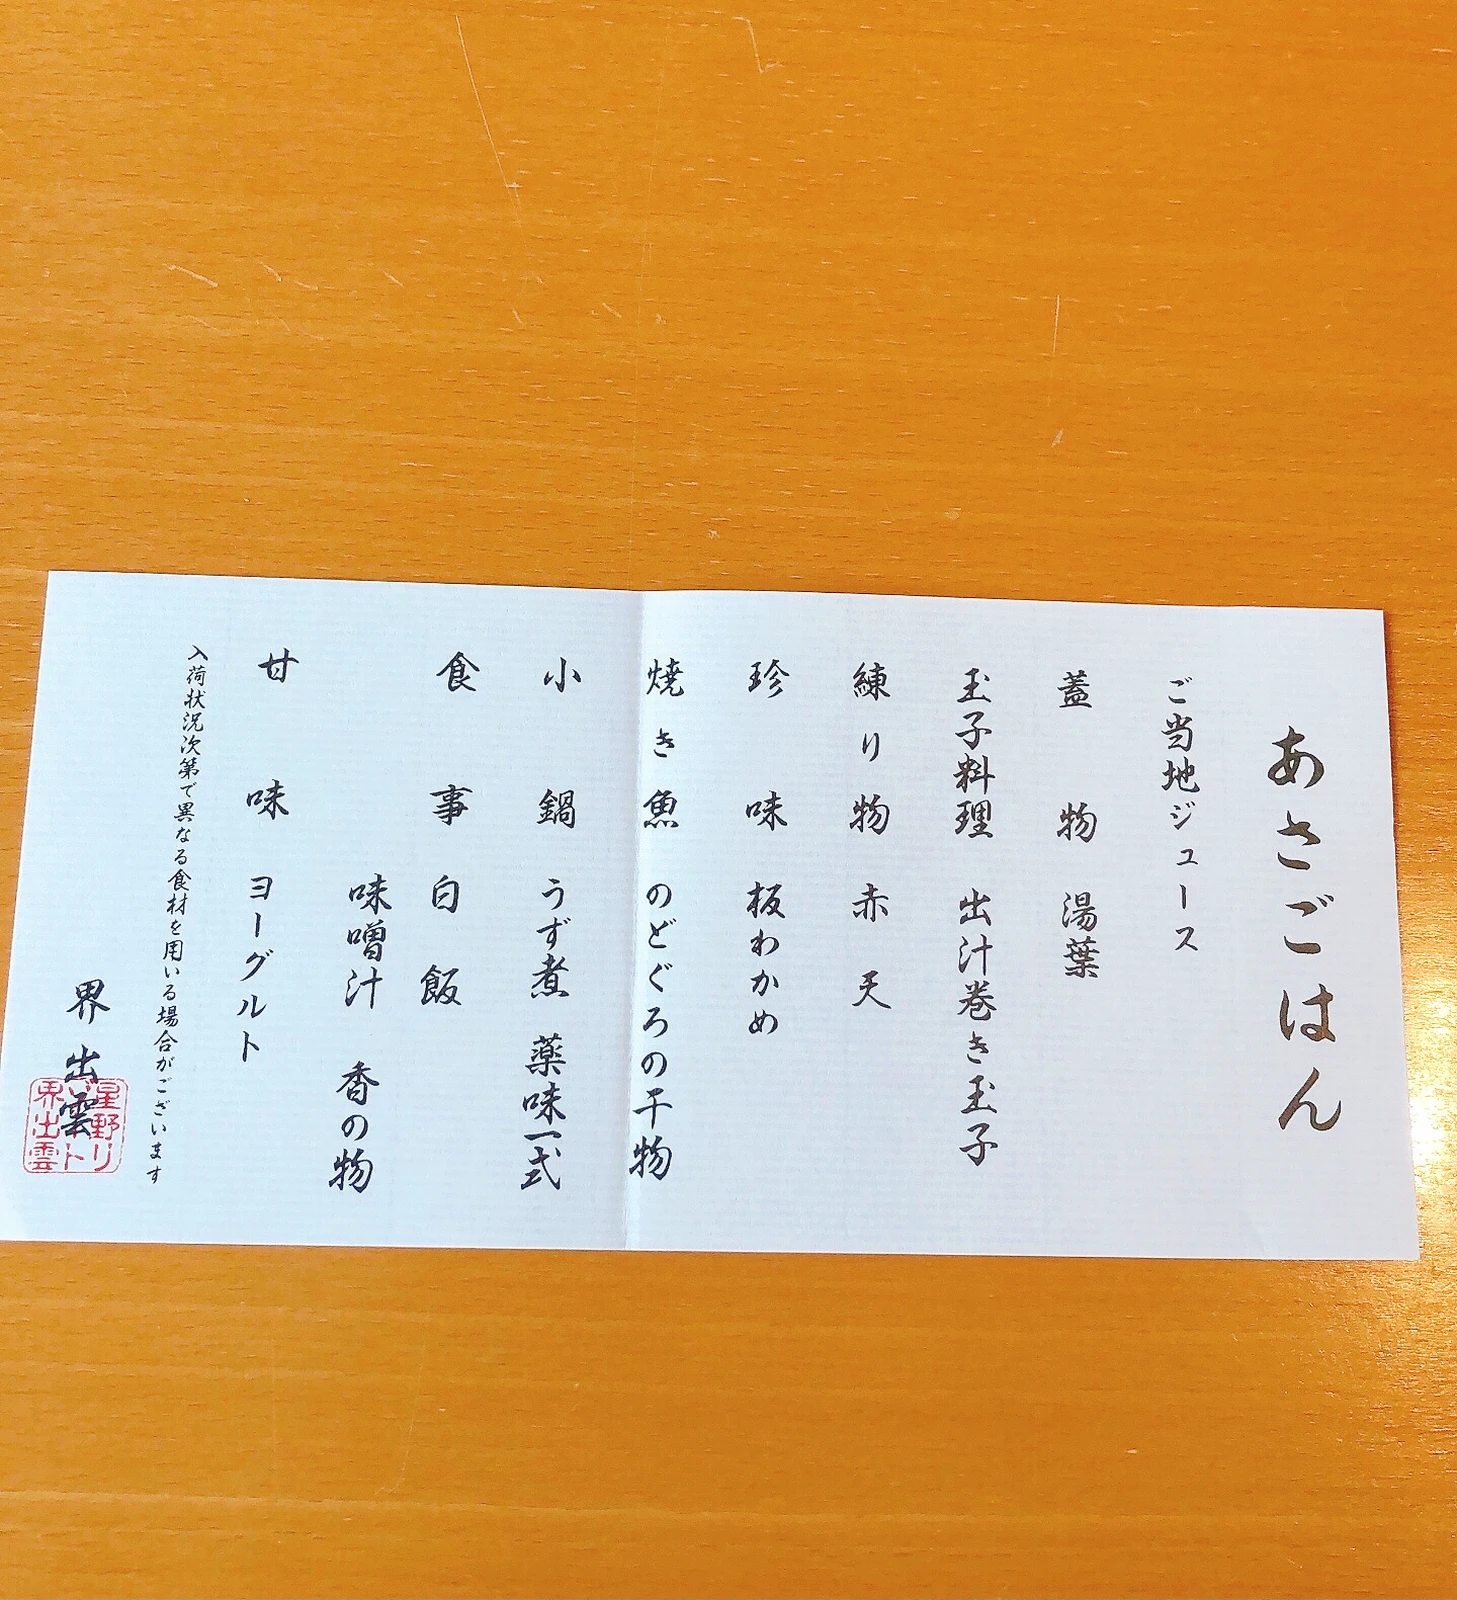 あさごはん
ご当地ジュース
蓋物 湯葉
玉子料理 出汁巻き玉子
練り物 赤天
珍味 板わかめ
焼き魚 のどぐろの干物
小鍋 うず煮 薬味一式
食事 白飯
味噌汁 香の物
甘味 ヨーグルト
入荷状況次第で異なる食材を用いる場合がございます
界 出雲
星野リ
界出雲